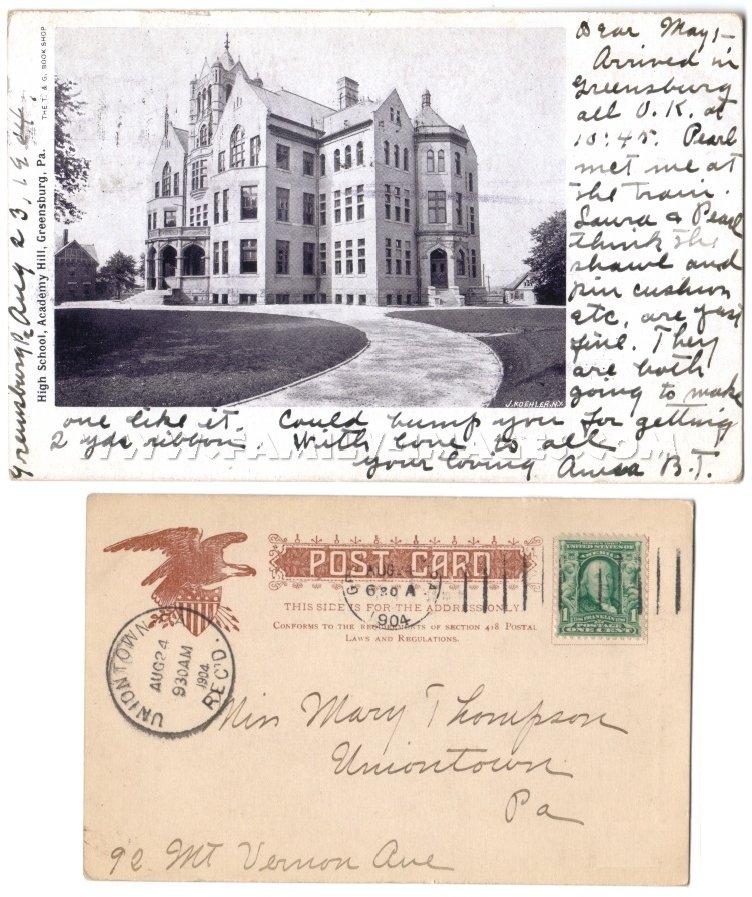 Dear May;-
Arrived in
Greensburg
all O.K. at
10:45. Pearl
met me at
the train.
Laura & Pearl
think the
shawl and
pin cushion
etc, are just
fine. They
are both
going to make
one like it. Could bump you for getting
2 yds ribbon With love to all
your loving B.T.
Greensburg Aug 23, 1904.
High School, Academy Hill, Greensburg, Pa. THE T. & G. BOOK SHOP
J. KOEHLER, N.Y.
WWW.FAMILYIMAGES.COM
POST CARD
THIS SIDE IS FOR THE ADDRESS ONLY
CONFORMS TO THE REQUIREMENTS OF SECTION 418 POSTAL
LAWS AND REGULATIONS.
AUG
630 A
1904
UNITED STATES OF
AMERICA
1 1
FRANKLIN
POSTAGE
ONE CENT
UNIONTOWN PA
AUG 24
930AM
1904
REC'D.
Miss Mary Thompson
Uniontown
Pa
92 Mt Vernon Ave